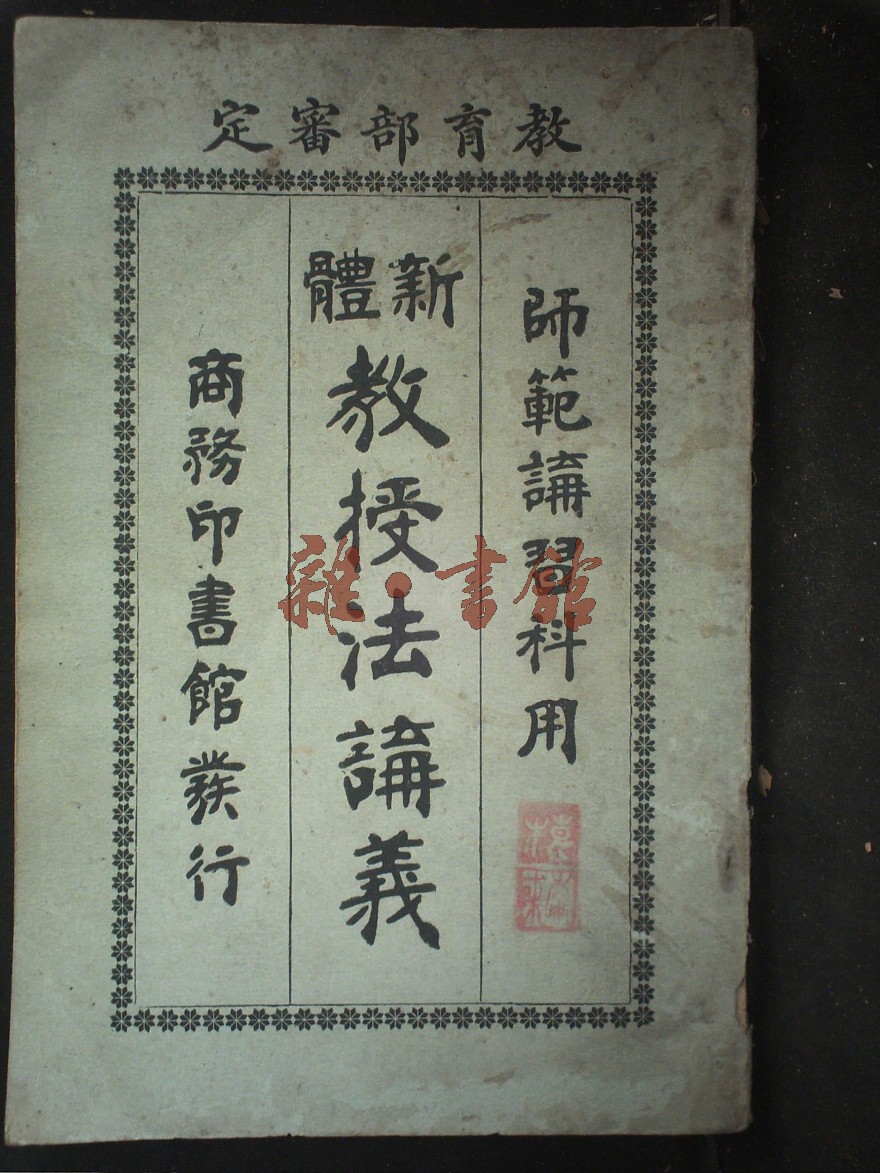 教育部審定
師範講習科用
新體
教授法講義
商務印書館發行
雜·書館